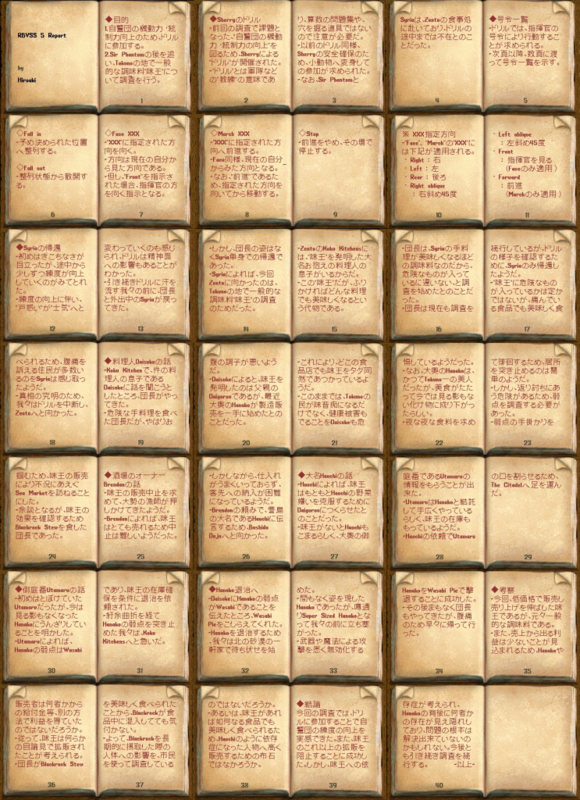 RBYSS S Report
by
Hiroaki
◆目的
・自警団の機動力・統
制力向上のため、ドリル
に参加する。
2.Sir Phantomの後を追
い、Tokunoの地で一般
的な調味料「味王」につ
いて調査を行う。
1
◆Sherryのドリル
・前回の調査で課題と
なった「自警団の機動
力・統制力の向上」を図
るため、Sherryによる
ドリルが開催された。
・「ドリル」とは軍隊など
の「教練」の意味であ
2
り、算数の問題集や、
穴を掘る道具ではない
ので注意が必要だ。
・以前のドリル同様、
Sherryの安全確保のた
め、小動物へ変身しての
参加が求められる。
・なお、Sir Phantomと
3
Syriaは、Zentoの食事処
に赴いておりドリルの
途中までは不在とのこ
とだった。
4
◆号令一覧
ドリルでは、指揮官の
号令により行動するこ
とが求められる。
・次頁以降、数頁に渡
って号令一覧を示す。
5
◇Fall in
・予め決められた位置
へ整列する。
◇Fall out
・整列状態から散開す
る。
6
◇Face XXX
・「XXX」に指定された方
向を向く。
・方向は現在の自分か
ら見た方向である。
・但し、「Front」を指示さ
れた場合、指揮官の方
を向く指示となる。
7
◇March XXX
・「XXX」に指定された方
向へ前進する。
・Face同様、現在の自分
からみた方向となる。
・なお、「前進」であるた
め、指定された方向を
向いてから移動する。
8
◇Stop
・前進をやめ、その場で
停止する。
9
※ XXX指定方向
・「Face」、「March」の「XXX」に
は下記が適用される。
・Right : 右
・Left : 左
・Rear : 後ろ
・Right oblique
: 右斜め45度
10
・Left oblique
: 左斜め45度
・Front
: 指揮官を見る
(Faceのみ適用)
・Forward
: 前進
(Marchのみ適用)
11
◆Syriaの帰還
・初めはぎこちなさが
目立ったが、途中から
少しずつ練度が向上し
ていくのがみてとれ
た。
・練度の向上に伴い、
"戸惑い"が"士気"へと
12
変わっていくのも感じ
られ、ドリルは精神面
への影響もあることが
わかった。
・引き続きドリルに汗を
流す我々の前に、団長
と外出中のSyriaが戻っ
てきた。
13
・しかし、団長の姿はな
くSyria単身での帰還で
あった。
・Syriaによれば、今回
Zentoに向かったのは、
Tokunoの地で一般的な
調味料「味王」の調査の
ためだった。
14
・ZentoのKobe Kitchens
には、「味王」を発明した大
名お抱えの料理人の
息子がいるからだ。
・この「味王」だが、ふり
かければどんな料理
でも美味しくなるとい
う代物である。
15
・団長は、Syriaの手料
理が美味しくなるほど
の調味料なのだから、
危険なものが入って
いるに違いない、と調
査を始めたとのことだっ
た。
・団長は現在も調査を
16
続行しているが、ドリル
の様子を確認するた
めにSyriaのみ帰還し
たようだ。
・「味王」に危険なもの
が入っているかは定か
ではないが、痛んでい
る食品でも美味しく食
17
べられるため、腹痛を
訴える住民が多数い
るのをSyriaは感じ取っ
たようだ。
・真相の究明のため、
我々はドリルを中断し、
Zentoへと向かった。
18
◆料理人Daisukeの話
・Kobe Kitchenで、件の料
理人の息子である
Daisukeに話を聞こうと
したところ、団長がやっ
てきた。
・危険な手料理を食べ
た団長だが、やはりお
19
腹の調子が悪いよう
だ。
・Daisukeによると、味王
を発明したのは父親の
Daigoroであるが、最近
大奥のHanakoが製造販
売を一手に始めたとの
ことだった。
20
・これにより、どこの食
品店でも味王をタダ同
然であつかっているよ
うだ。
・このままでは、Tokunoの
民が味音痴になるだ
けでなく、健康被害も
でることをDaisukeは危
21
惧しているようだった。
・なお、大奥のHanakoは、
かつてTokuno一の美人
だったが、美食がたた
って今では見る影もな
い化け物に成り下が
ったらしい。
・夜な夜な食料を求め
22
て徘徊するため、居所
を突き止めるのは簡
単のようだ。
・しかし、返り討ちにあ
う危険があるため、弱
点を調査する必要があっ
た。
・弱点の手掛かりを
23
掴むため、味王の販売
により不況にあえぐ
Sea Marketを訪ねるこ
とにした。
・余談となるが、味王の
効果を確認するため
Blackrock Stewを食した
団長であった。
24
◆酒場のオーナー
Brendonの話
・味王の販売中止を求
めて、大勢の漁師が押
しかけてきたようだ。
・Brendonによれば、味王
はとても売れるため中
止は難しいようだった。
25
・しかしながら、仕入れ
がうまくいっておらず、
客先への納入が困難
になっているようだ。
・Brendonの頼みで、雪島
の大名であるHonchiに伝
言するため、Bushido
Dojoへと向かった。
26
◆大名Honchiの話
・Honchiによれば、味王
はもともとHonchiの野菜
嫌いを克服するために、
Daigoroにつくらせたと
のことだった。
・味王がないとHonchiも
こまるらしく、大奥の御
27
庭番であるUtamaroの情
報をもらうことが出来
た。
・UtamaroはHanakoと結託
して手広くやっている
らしく、味王の在庫も
もっているようだ。
・Honchiの依頼でUtamaro
28
の口を割らせるため、
The Citadelへ足を運
んだ。
29
◆御庭番Utamaroの話
・初めはとぼけていた
Utamaroだったが、今は
見る影もなくなった
Hanakoにうんざりしてい
ることを明かした。
・Utamaroによれば、
Hanakoの弱点はWasabi
30
であり、味王の在庫確
保を条件に退治を依
頼された。
・紆余曲折を経て
Hanakoの弱点を突き止
めた我々は、Kobe
Kitchensへと急いだ。
31
◆Hanako退治へ
・DaisukeにHanakoの弱点
がWasabiであることを
伝えたところ、Wasabi
Pieをこしらえてくれた。
・Hanakoを退治するため
我々は北の砂漠の一
軒家で待ち伏せを始
32
めた。
・間もなく姿を現した
Hanakoであったが、噂通
りSuper Sized Hanakoとな
って我々の前に立ち塞
がった。
・武器や魔法による攻
撃を悉く無効化する
33
HanakoをWasabi Pieで撃
退することに成功した。
・その後まもなく団長
もやってきたが、腹痛
のため早々に帰って行
った。
34
◆考察
・今回、低価格で販売し
売り上げを伸ばした味
王であるが、元々一般
的な調味料である。
・また、売上から出る利
益は少ないことが見
込まれるため、Hanakoや
35
販売者は何者かから
の給付金等、別の方
法で利益を得ていた
のではないだろうか。
・従って、味王は何らか
の目論見で拡販され
たことが考えられる。
・団長がBlackrock Stew
36
を美味しく食べられた
ことから、Blackrockが食
品中に混入しても気
付かない。
・よって、Blackrockを長
期的に摂取した際の
人体への影響を、市民
を使って調査している
37
のではないだろうか。
・あるいは、味王があれ
ば如何なる食品でも
美味しく食べられるた
め、Honchiのように依
存症になった人物へ高く
販売するための布石
ではなかろうか。
38
◆結論
今回の調査ではドリ
ルに参加することで自
警団の練度の向上を
実感できた。また、味王
のこれ以上の拡販を
阻止することに成功し
た。しかし、味王への依
39
存症が考えられ、
Hanakoの背後に何者か
の存在が見え隠れし
ており、問題の根本は
解決出来ていないの
かもしれない。今後と
も引き続き調査を続
行する。 -以上-
40